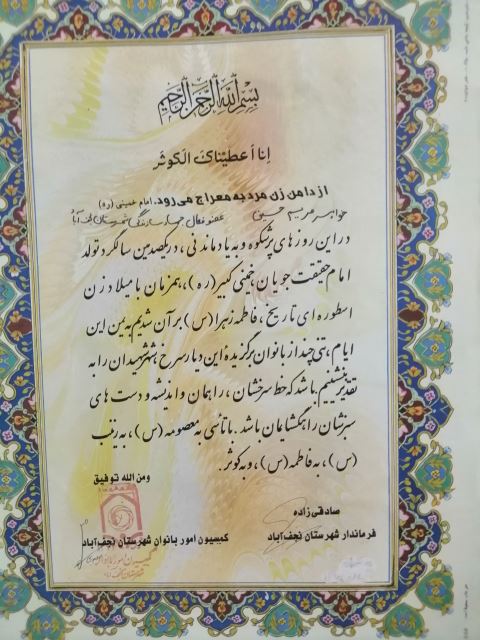 بسم الله الرحمن الرحیم
انا اعطیناک الکوثر
از دامن زن مرد به معراج می‌رود. امام خمینی (ره)
خواهر مریم حسین عضو فعال جهاد سازندگی شهرستان نجف آباد
در این روزهای پرشکوه و به یادماندنی، در یکصدمین سالگرد تولد
امام حقیقت جویان خمینی کبیر (ره)، همزمان با میلاد زن
اسطوره ای تاریخ، فاطمه زهرا (س) بر آن شدیم به یمن این
ایام، تنی چند از بانوان برگزیده این دیار سرخ هشتر شهیدان را به
تقدیر بنشینیم باشد که خط سرخشان، راهمان و اندیشه و دست های
سبزشان راهگشایمان باشد. با تأسی به معصومه (س)، به زینب
(س)، به فاطمه (س)، و به کوثر.
ومن الله توفیق
صادقی زاده
فرماندار شهرستان نجف آباد
کمیسیون امور بانوان شهرستان نجف آباد